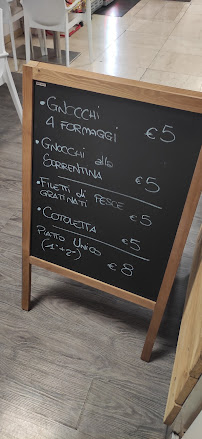 • GNOCCHI
4 FORMAGGI €5
• GNOCCHI alla
SORRENTINA €5
• FILETTI di PESCE
GRATINATI €5
• COTOLETTA €5
PIATTO UNICO
(1°+2°) €8